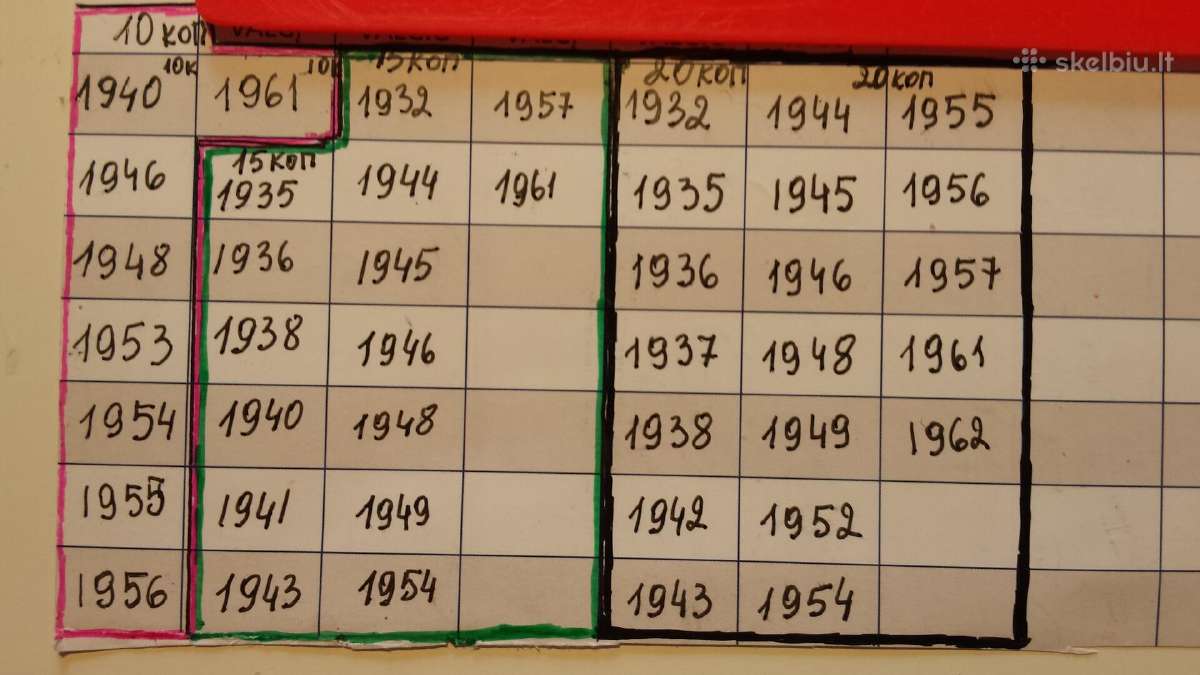 10 коп
skelbiu.lt
10к 10к 15 коп 20 коп 20 коп
1940 1961 1932 1957 1932 1944 1955
15 коп
1946 1935 1944 1961 1935 1945 1956
1948 1936 1945 1936 1946 1957
1953 1938 1946 1937 1948 1961
1954 1940 1948 1938 1949 1962
1955 1941 1949 1942 1952
1956 1943 1954 1943 1954